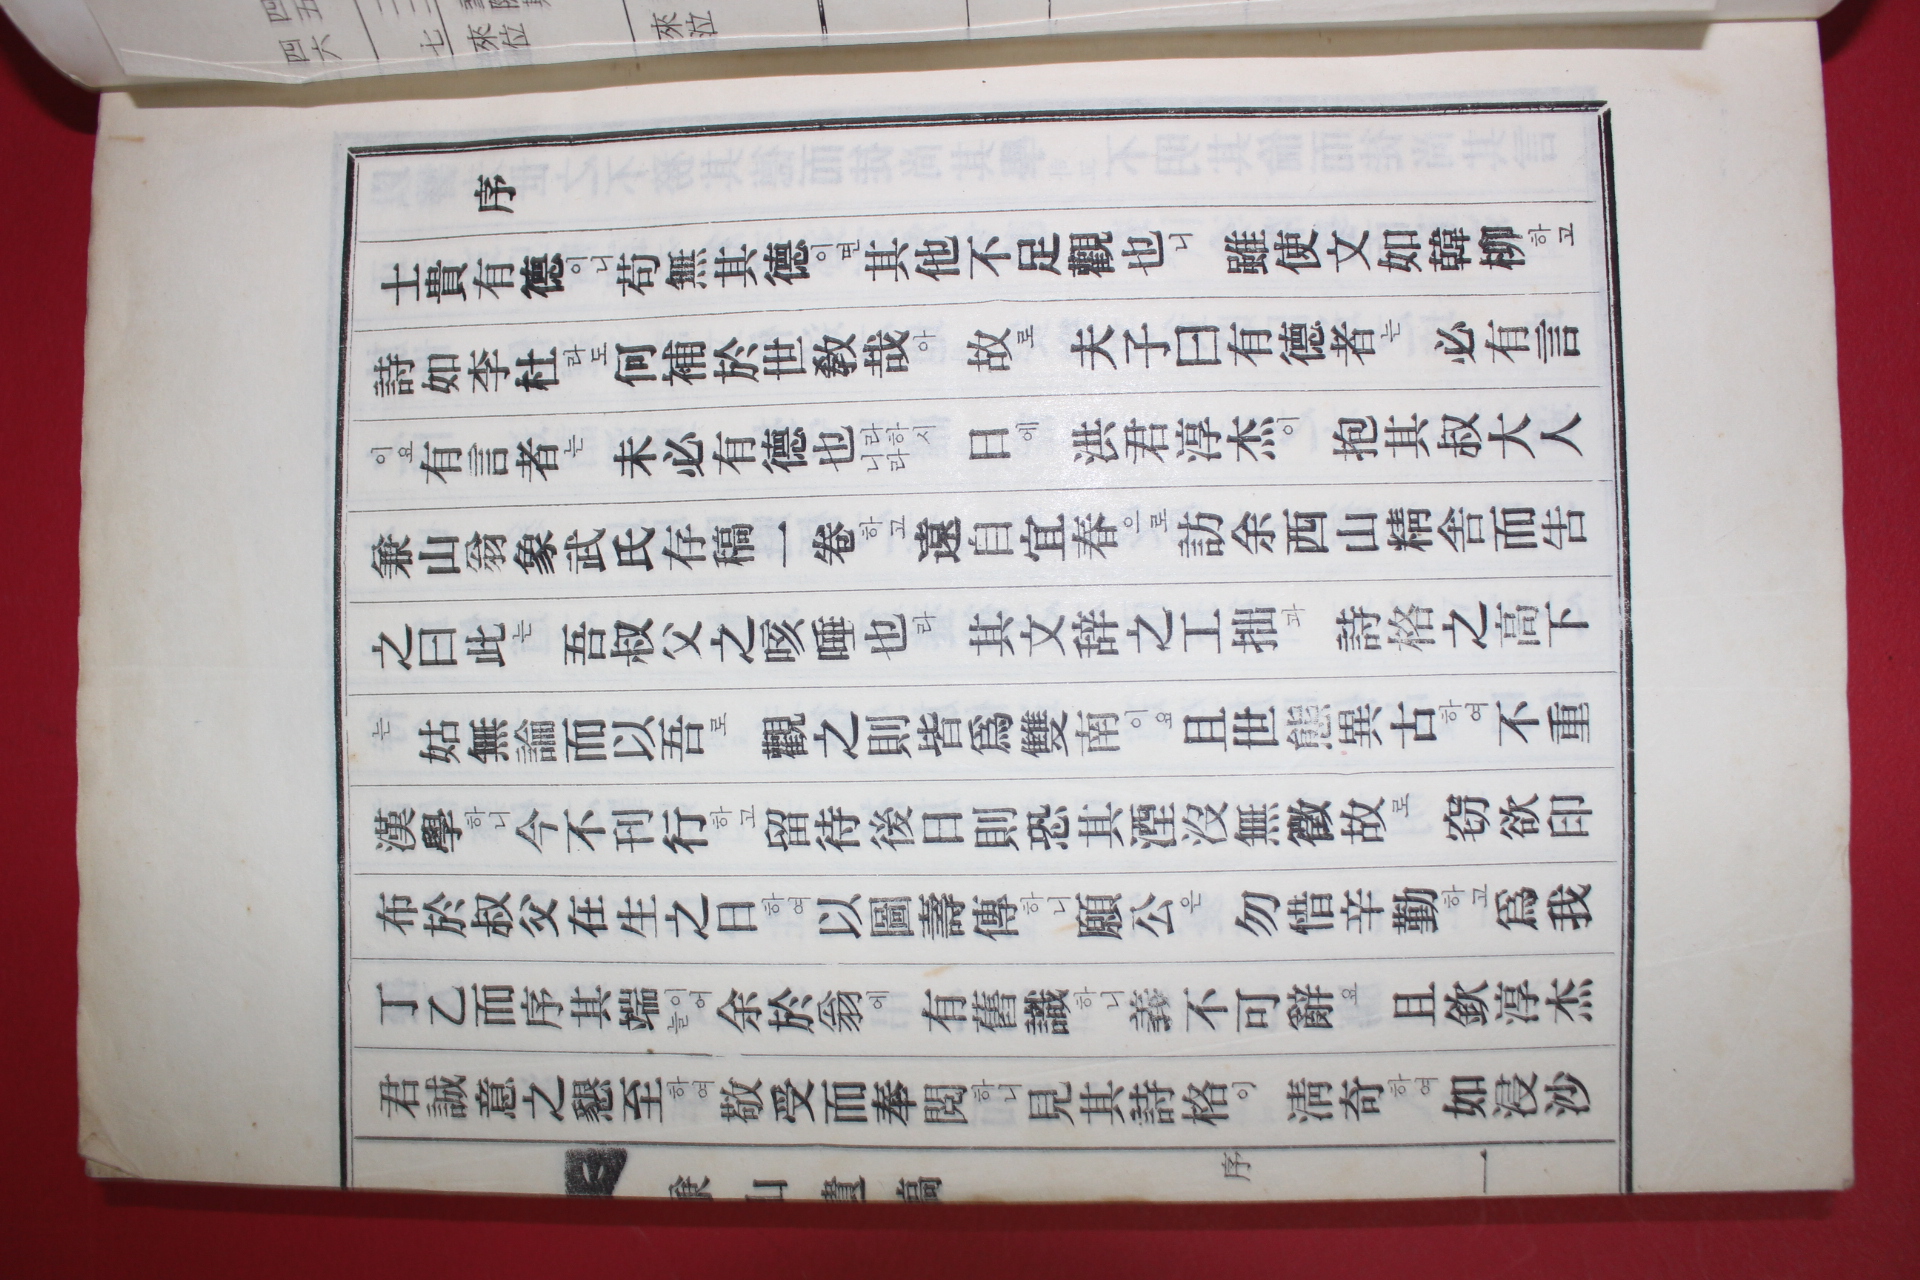 序
士貴有德이니苟無其德이면其他不足觀也니雖使文如韓柳하고
詩如李杜라도何補於世敎哉아故로夫子曰有德者는必有言
이요有言者는未必有德也니라라하시日에洪君淳杰이抱其叔大人
兼山翁象武氏存稿一卷하고遠自宜春으로訪余西山精舍而告
之曰此는吾叔父之咳唾也라其文辞之工拙과詩格之高下
는姑無論而以吾로觀之則皆爲雙南이요且世態異古하여不重
漢學하니今不刊行하고留待後日則恐其湮沒無徵故로窃欲印
布於叔父在生之日하여以圖壽傳하니願公은勿惜辛勤하고爲我
丁乙而序其端늘이어余於翁에有舊識하니義不可辭요且欽淳杰
君誠意之懇至하여敬受而奉閱하니見其詩格이淸奇하여如浸沙
兼山遺稿
序
一
四五
四六
七
來位
來泣